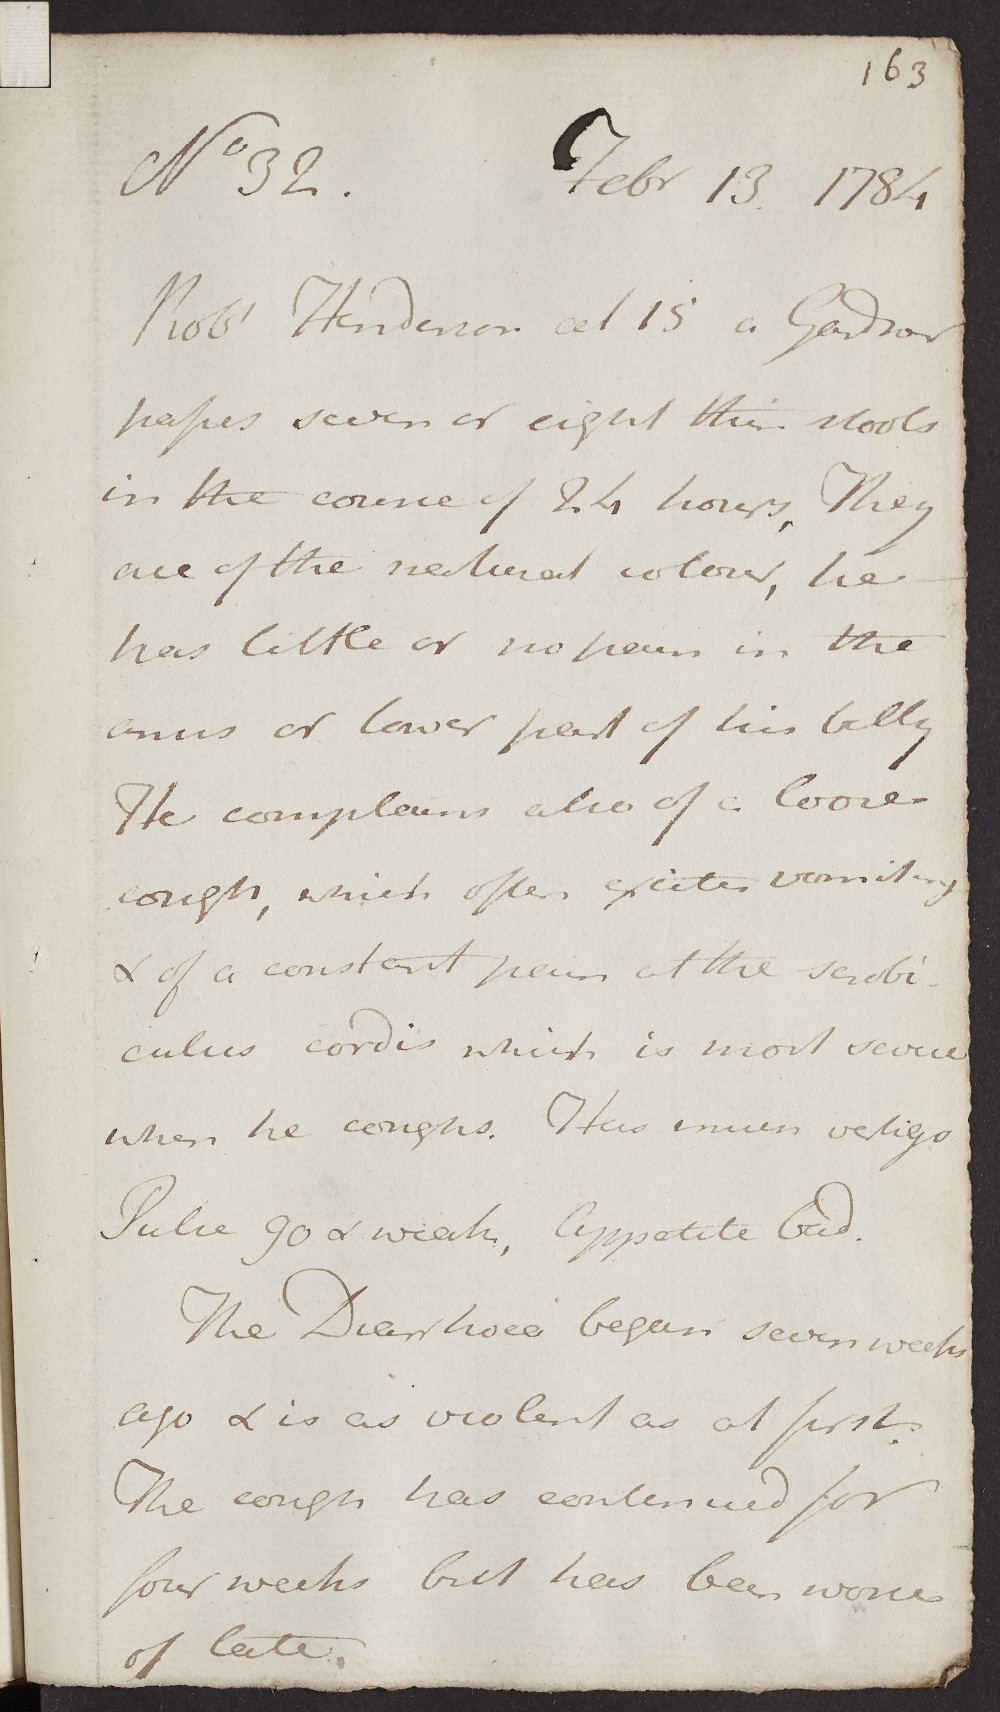 163
No 32. Febr 13. 1784
Robt Henderson aet 15 a Gardner
passes seven or eight thin stools
in the course of 24 hours, They
are of the natural colour, he
has little or no pain in the
anus or lower part of his belly
He complains also of a loose
cough, which often excites vomiting
& of a constant pain at the scrobi-
culus cordis which is most severe
when he coughs. Has much vertigo
Pulse 90 & weak, Appetite bad.
The Diarrhoea began seven weeks
ago & is as violent as at first.
The cough has continued for
four weeks but has been worse
of late.